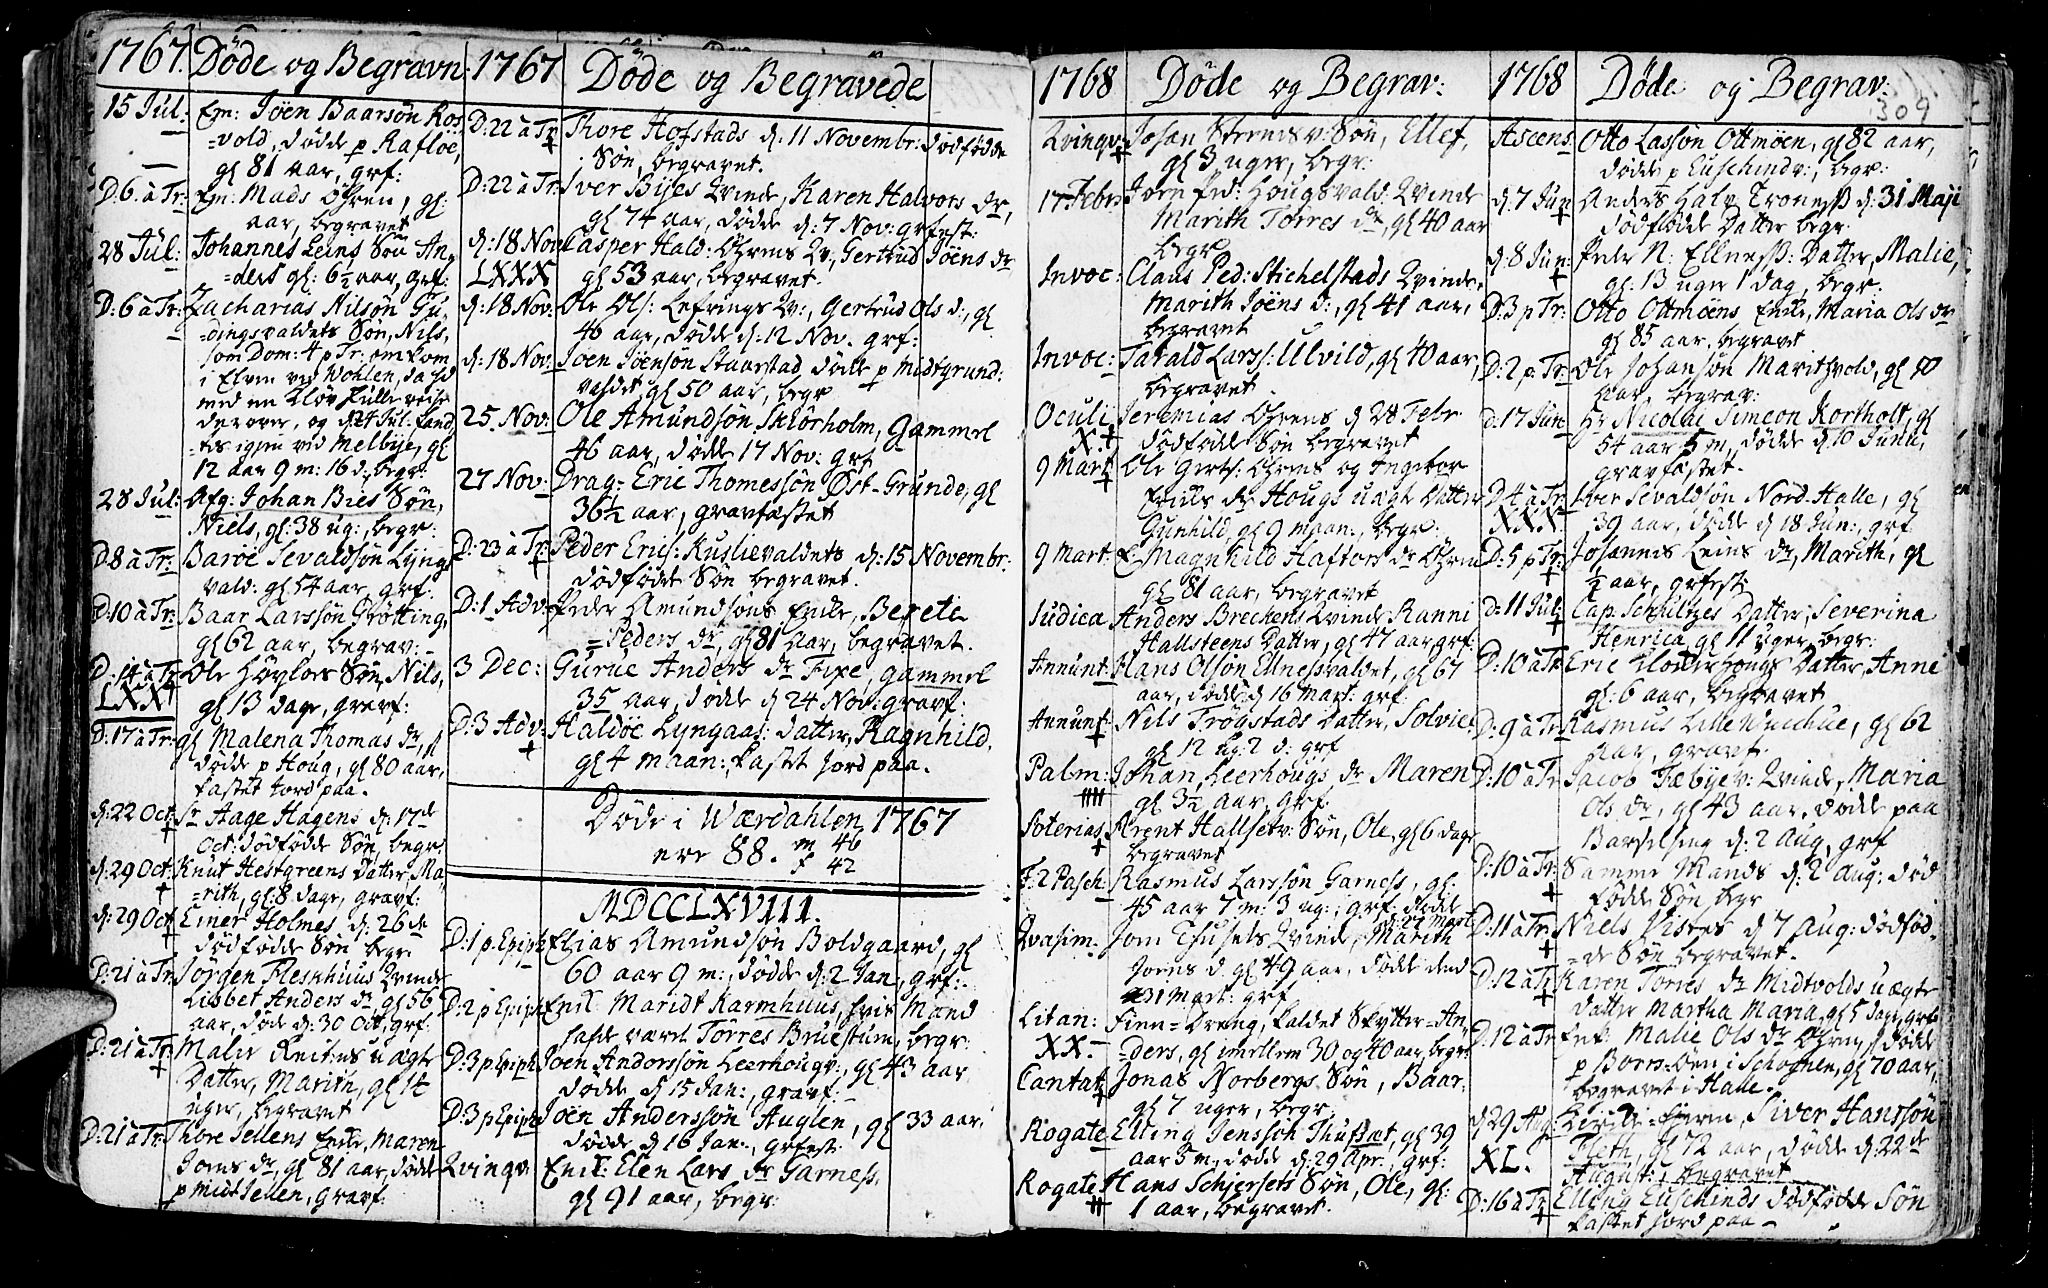 1767. Döde og Begravn:
15 Jul: Em: Jöen Baarsön Ros
=vold, dödde p Rafloe,
gl 81 aar, grf:
D: 6. à Tr: Em: Mads Öhren, gl:
aar, begravet
28 Jul: Johannes Leins Sön An
=ders gl: 6½ aar, grf:
D: 6 à Tr: Zacharias Nilsön Gu
=dingsvaldets Sön, Nils,
som Dom: 4 p Tr: omkom
i Elven ved Wohlen, da hd
med en Klöv fulle
derover, og d 24 Jul: fand
=tes igjen ved Melbye, gl
12 aar 9 m: 16 d: begr:
28 Jul: Afg: Johan Bies Sön,
Niels, gl: 38 ug:, begr:
D: 8 à Tr: Baroe Sevaldsön Lyngs
vald: gl 54 aar, grf.
D: 10 à Tr: Baar Larssön Grötting,
gl 62 aar, begrav:
D: 14 à Tr Ole Höylos Sön, Nils,
LXX gl 13 dage, gravf:
D: 17 à Tr: gl Malena Thomas dr,
dödde p Houg, gl 80 aar,
kastet Jord paa.
d: 22 Oct Sr Hage Hagens d: 17de
Oct: dödfödde Sön, begr:
d: 29 Oct Knut Hestgreens Datter Ma
=rith, gl: 8 dage, gravf:
d: 29 Oct Einer Holmes d: 26de
dödfödde Sön begr.
D: 21 à Tr Jörgen Fleskhuus Qvinde
Lisbet Anders dr gl 56
aar, döde d: 30 Oct, grf:
D: 21 à Tr: Malie Reitens uægte
Datter, Marith, gl 14
uger, begravet
D: 21 à Tr: Thore Jellens Enke, Maren
Joens dr, gl 81 aar, dödde
p midt Jellen, gravf:
1767 Döde og Begravede
D: 22 à Tr Thore Hofstads d: 11 Novembr: dödfödde
Sön, begravet.
D: 22 à Tr: Iver Byes Qvinde, Karen Halvors dr,
gl 74 aar, dödde d: 7 Nov: grfest:
d: 18 Nov Casper Hald: Öhrens Qv, Gertrud Jöens dr
LXXX gl 53 aar, begravet.
d: 18 Nov: Ole Ols: Lefrings Qv:, Gertrud Ols d:, gl
46 aar, dödde d: 12 Nov. grf:
d: 18 Nov: Joen Jöensön Staarstad dödde p Midtgrund:
valdet, gl 50 aar, begr
25 Nov: Ole Amundsön Skiörholm, Gammel
46 aar, dödde 17 Nov: grf
27 Nov: Drag= Eric Thomessön Öst-Grunde, gl
36½ aar, gravfæstet
D: 23 à Tr: Peder Erics: Kuslievaldets d: 15 Novembr:
dödfödde Sön begravet.
D: 1 Adv: Peder Amundsöns Enke, Berete
=Peders dr, gl 81 aar, begravet.
3 Dec: Gurue Anders dr Fixe, gammel
35 aar, dödde d 24 Nov: gravf:
D: 3 Adv: Haldöe Lyngaas: Datter, Ragnhild,
gl 4 maan:, kastet Jord paa.
Döde i Wærdahlen 1767
ere 88. m 46
f 42
MDCCLXVIII.
D: 1 p Epiph Elias Amundsön Boldgaard, gl
60 aar 9 m:, dödde d: 2 Jan, grf:
D: 2 p Epiph Enk: Maridt Karmhuus, hvis Mand
hafde været Törres Bruestuen, begr:
D: 3 p Epiph Joen Anderssön Leerhougv:, gl 43 aar
dödde d 15 Jan:, gravf:
D: 3 p Epiph Joen Anderssön Auglen, gl 33 aar,
dödde d 16 Jan:, grfest
Qvinqv: Enk: Elen Lars dr Garness,
gl 91 aar, begr:
1768 Döde og Begrav:
Qvinqv: Johan Steends v: Sön, Ellef,
gl 3 uger, begr:
17 Febr: Joen Ped: Hougsvald: Qvinde
Marith Torres dr, gl 40 aar
begr
Invoc: Claus Ped: Stichelstads Qvinde,
Marith Jöens d:, gl 41 aar,
begravet
Invoc: Tarald Larss: Ulvild, gl 40 aar,
begravet
Oculi Jeremias Öhrens d 28 Febr
X. dödfödde Sön begravet
9 Mart Ole Gertss: Öhrens og Ingebor
Erichs dr Hougs uægte Datter
Gunhild, gl 9 maan:, begr:
9 Mart. E Magnhild Haftors dr Öhren
gl 81 aar, begravet
Judica Anders Breckens Qvinde Ranni
Hallsteens Datter, gl 47 aar, grf:
Annunt: Hans Olsön Ellnesvaldet, gl 67
aar, dödde d 16 Mart: grf:
Annunt Nils Trögstads Datter, Solvie
gl 12 ug: 2 d: grf
Palm: Johan, Leerhougs dr Maren
gl 3½ aar, grf:
Soterias Arent Hallsetv: Sön, Ole, gl 6 dage
begravet
F: 2 Pasch Rasmus Larssön Garness, gl:
45 aar 7 m: 3 ug:, grf: dödde
d: 27 Mart
Qvasim: Jon Efusets Qvinde, Marith
Joens d. gl 49 aar, dödde dend
31 Mart: grf
Litan: Finn=Dreng, kaldet Skytter-An,
XX. =ders, gl imellem 30 og 40 aar, begr:
Cantat Jonas Norbergs Sön, Baar,
gl 7 uger, begr:
Rogate Elling Jenssön Thusæt, gl 39
aar 5 m:, dödde d: 29 Apr:, grf:
Rogate Hans Schjersets Sön, Ole, gl:
1 aar, begravet.
1768 Döde og Begrav:
309
Ascens: Otto Lassön Ottmöen, gl 82 aar,
dödde p Euschindv:, begr:
d: 7 Jun Anders Halv: Troness d: 31 Maji
dödfödde Datter begr:
d: 8 Jun: Peder N: Ellness: Datter, Malie,
gl: 13 uger 1 dag, begr:
D: 3 p Tr: Otto Ottmöens Enke, Maria Ols dr
gl 85 aar, begravet
D: 2 p Tr: Ole Johansön Marithvold, gl 70
aar, begrav:
d: 17 Jun Hr Nicolai Simeon Kortholt, gl
54 aar 5 m, dödde d: 10 Junii,
gravfæstet.
D: 4 à Tr: Iver Sevaldsön Nord-Halle, gl
XXX 39 aar, dödde d 18 Jun:, grf
D: 5 p Tr: Johannes Leins dr, Marith, gl
½ aar, grfest:
d: 11 Jul: Cap. Schultzes Datter, Severina
Henrica gl 11 uger, begr:
D: 10 à Tr Eric Klosterhougs Datter, Anne
gl: 6 aar, begravet
D: 9 à Tr Rasmus Lille Wuchue, gl 62
aar, gravet
D: 10 à Tr Jacob Fæbyev: Qvinde, Maria
Ols dr, gl 43 aar, dödde paa
Barselseng d: 2 Aug, grf
D: 10 à Tr: Samme Mands d: 2 Aug: död
födde Sön begr
D: 11 à Tr: Niels Vistes d 7 Aug: dödföd
=de Sön begravet.
D: 12 à Tr Karen Torres dr Midtvolds uægte
Datter Martha Maria, gl 5 dage, grf
D: 12 à Tr Enk: Malie Ols dr Öhren, dödde
p Borrs-öen i Schognen, gl 70 aar,
begravet i Halle.
d 29 Aug Siver Hanssön
Fleth, gl 72 aar, dödde d: 22de
XL. August:, begravet
D: 16 à Tr Elling Euschinds dödfödde Sön
kastet Jord paa